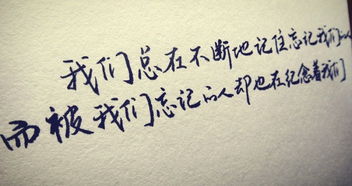 我们总在不断地记住忘记我们的人
而被我们忘记的人却也在纪念着我们